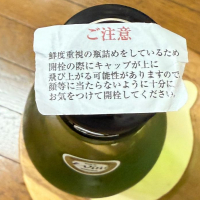 ご注意
鮮度重視の瓶詰めをしているため
開栓の際にキャップが上に
飛び上がる可能性がありますので
顔等に当たらないように十分に
お気をつけて開栓してください。